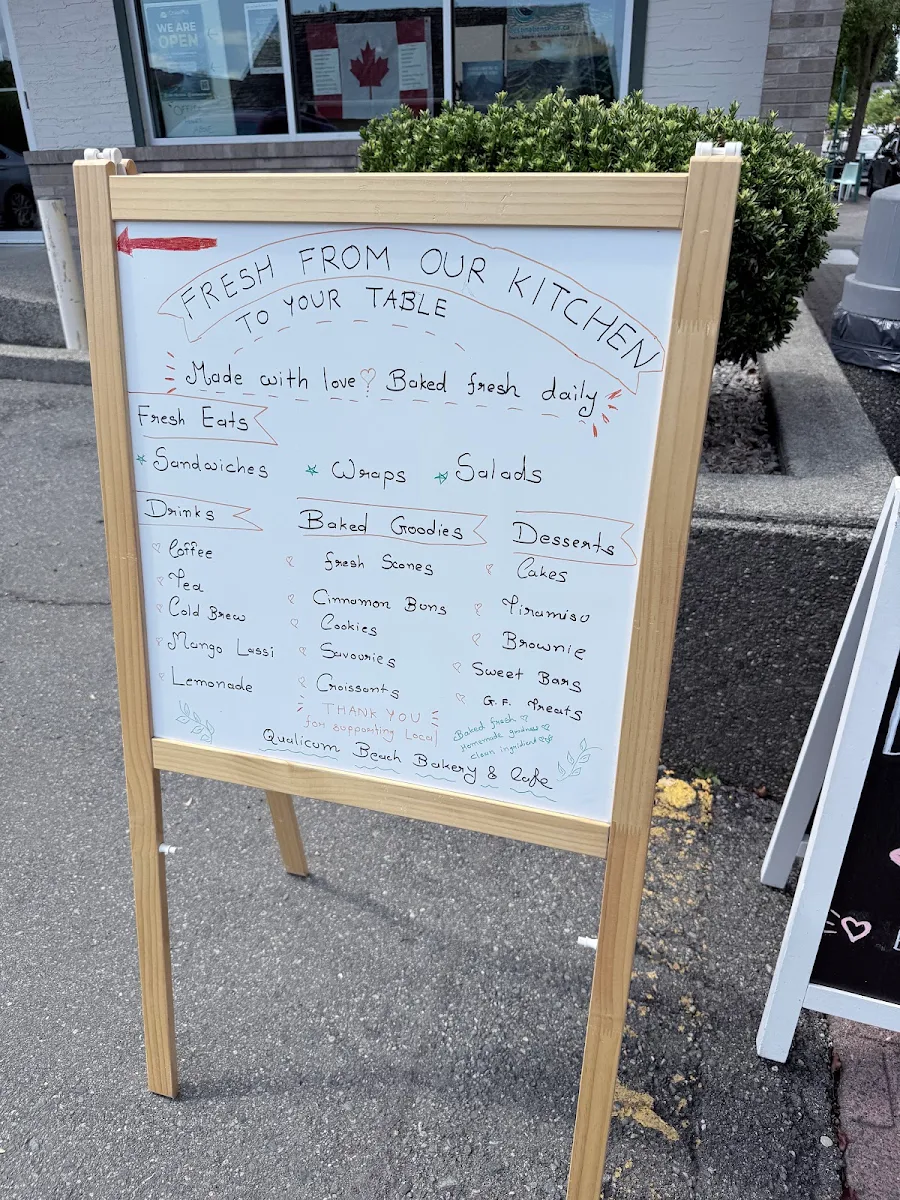 WE ARE
OPEN
FRESH FROM OUR KITCHEN
TO YOUR TABLE
Made with love Baked fresh daily
Fresh Eats
Sandwiches Wraps Salads
Drinks
Coffee
Tea
Cold Brew
Mango Lassi
Lemonade
Baked Goodies
fresh Scones
Cinnamon Buns
Cookies
Savouries
Croissants
Desserts
Cakes
Tiramisu
Brownie
Sweet Bars
G.F. Treats
THANK YOU
for supporting Local
Baked fresh
Homemade goodness
clean ingredients
Qualicum Beach Bakery & Cafe